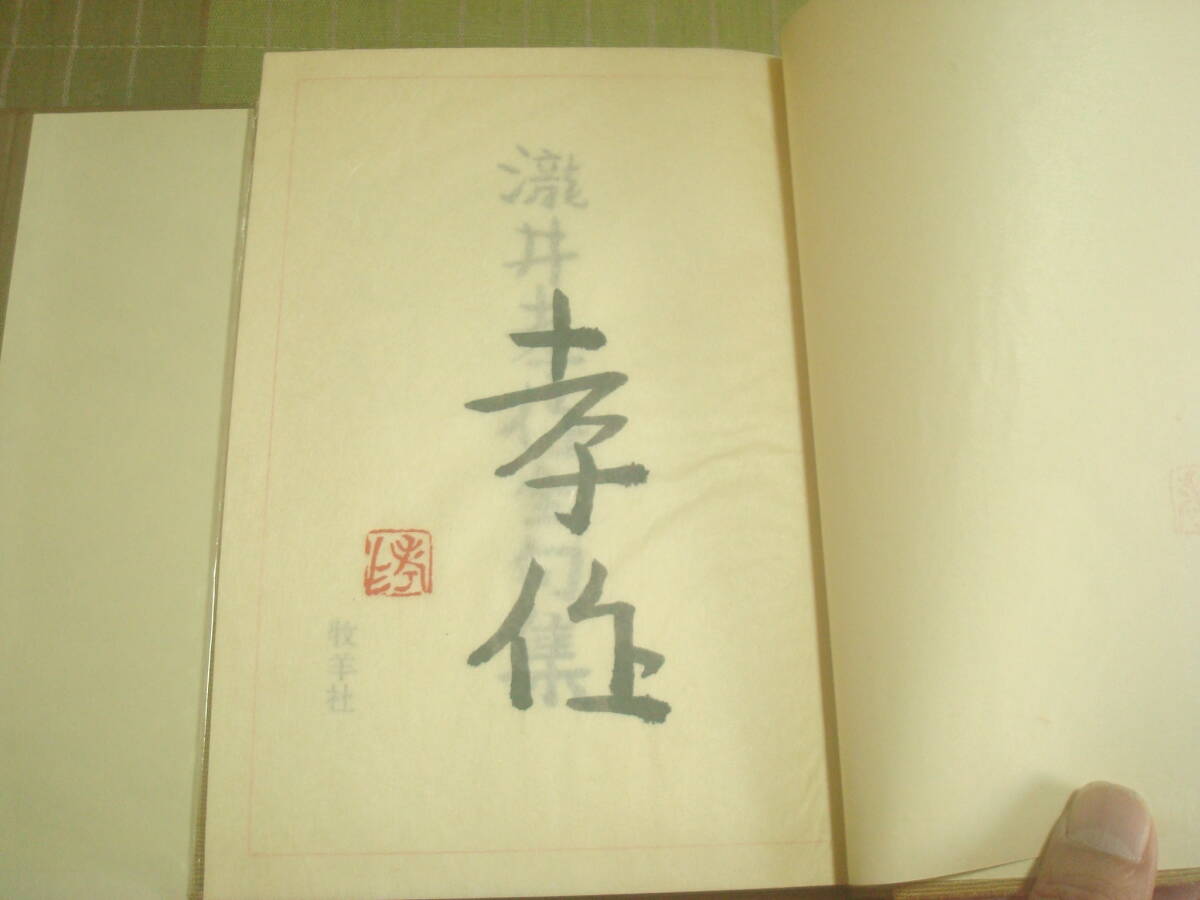 瀧井孝作全句集
孝作
牧羊社